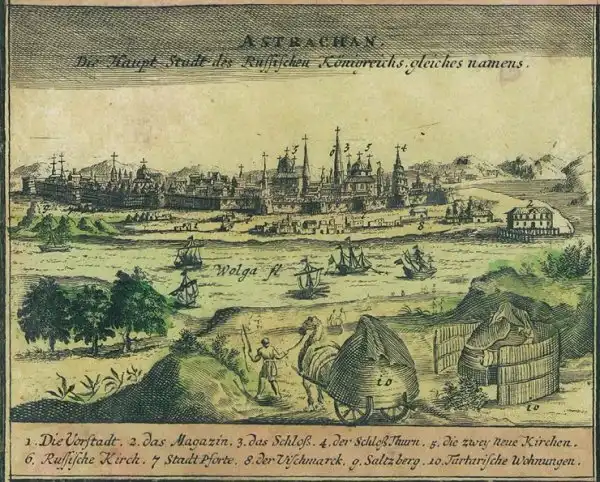 ASTRACHAN.
Die Haupt Stadt des Russischen Königreichs, gleiches namens.
3 5 6 3 5 4
2
Wolga fl
10
10
1. Die Vorstadt. 2. das Magazin. 3. das Schloß. 4. der Schloß Thurn. 5. die zwey neue Kirchen.
6. Russische Kirch. 7 Stadt Pforte. 8. der Vischmarck. 9. Saltzberg. 10. Tartarische Wohnungen.